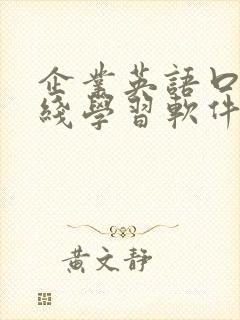 企業英語口
綫學習軟件
黃文靜